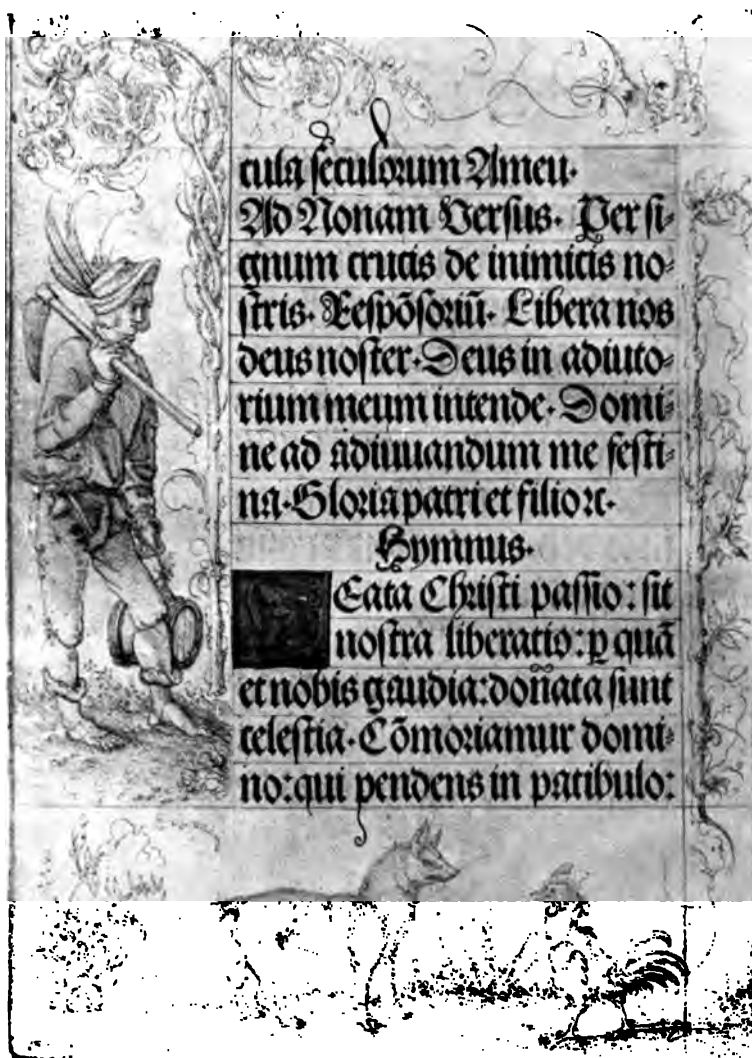 cula seculorum Ameu.
Ad Nonam Versus. Per si-
gnum crucis de inimicis no-
stris. Respōsoriū. Libera nos
deus noster. Deus in adiuto-
rium meum intende. Domi-
ne ad adiuuandum me festi-
na. Gloria patri et filio ꝛc.
Hymnus.
BEata Christi passio: sit
nostra liberatio: ꝑ quā
et nobis gaudia: donata sunt
celestia. Cōmoriamur domi-
no: qui pendens in patibulo: